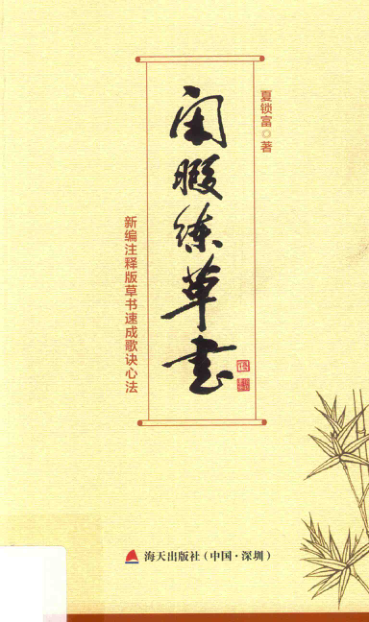 夏锁富◎著
闲暇练草书
新编注释版草书速成歌诀心法
海天出版社（中国·深圳）